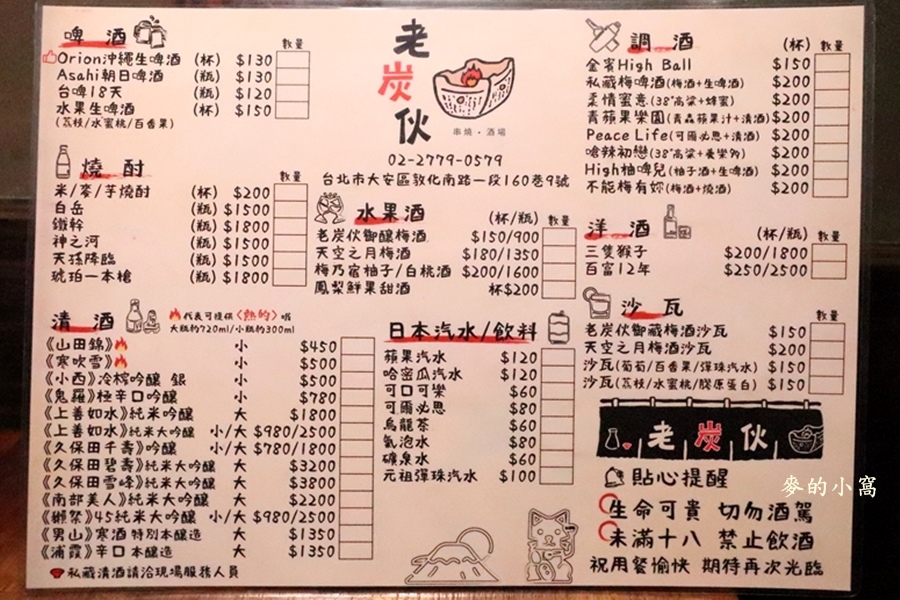 啤酒 數量
Orion沖繩生啤酒 (杯) $130
Asahi朝日啤酒 (瓶) $130
台啤18天 (瓶) $120
水果生啤酒 (杯) $150
(荔枝/水蜜桃/百香果)
燒酎 數量
米/麥/芋燒酎 (杯) $200
白岳 (瓶) $1500
鐵幹 (瓶) $1800
神之河 (瓶) $1500
天孫降臨 (瓶) $1500
琥珀一本槍 (瓶) $1800
清酒
代表可提供〈熱的〉哦
大瓶約720ml/小瓶約300ml
《山田錦》 小 $450
《寒吹雪》 小 $500
《小西》冷榨吟釀 銀 小 $500
《鬼羅》極辛口吟釀 小 $780
《上善如水》純米吟釀 大 $1800
《上善如水》純米大吟釀 小/大 $980/2500
《久保田千壽》吟釀 小/大 $780/1800
《久保田碧壽》純米大吟釀 大 $3200
《久保田雪峰》純米大吟釀 大 $3800
《南部美人》純米大吟釀 大 $2200
《獺祭》45純米大吟釀 小/大 $980/2500
《男山》寒酒 特別本釀造 大 $1350
《浦霞》辛口 本釀造 大 $1350
私藏清酒請洽現場服務人員
老炭伙
串燒・酒場
02-2779-0579
台北市大安區敦化南路一段160巷9號
水果酒 (杯/瓶) 數量
老炭伙御釀梅酒 $150/900
天空之月梅酒 $180/1350
梅乃宿柚子/白桃酒 $200/1600
鳳梨鮮果甜酒 杯$200
日本汽水/飲料
蘋果汽水 $120
哈密瓜汽水 $120
可口可樂 $60
可爾必思 $80
烏龍茶 $60
氣泡水 $80
礦泉水 $60
元祖彈珠汽水 $100
調酒 (杯) 數量
金賓High Ball $150
私藏梅啤酒(梅酒+生啤酒) $200
柔情蜜意(38°高粱+蜂蜜) $200
青蘋果樂園(青森蘋果汁+清酒) $200
Peace Life(可爾必思+清酒) $200
嗆辣初戀(38°高粱+養樂多) $200
High柚啤兒(柚子酒+生啤酒) $200
不能梅有妳(梅酒+燒酒) $200
洋酒 (杯/瓶) 數量
三隻猴子 $200/1800
百富12年 $250/2500
沙瓦 數量
老炭伙御藏梅酒沙瓦 $150
天空之月梅酒沙瓦 $200
沙瓦(葡萄/百香果/彈珠汽水) $150
沙瓦(荔枝/水蜜桃/膠原蛋白) $150
老炭伙
貼心提醒
生命可貴 切勿酒駕
未滿十八 禁止飲酒
祝用餐愉快 期待再次光臨
麥的小窩